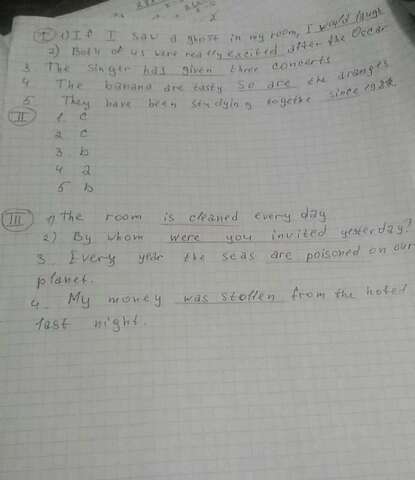 I 1) If I saw a ghost in my room, I would laugh
2) Both of us were really excited after the Oscar
3 The singer has given three concerts
4 The banana are tasty so are the oranges
5 They have been studying togethe since
II 1. c
2 c
3 b
4 a
5 b
III 1) The room is cleaned every day
2) By whom were you invited yesterday?
3. Every year the seas are poisoned on our
planet.
4. My money was stollen from the hotel
last night.